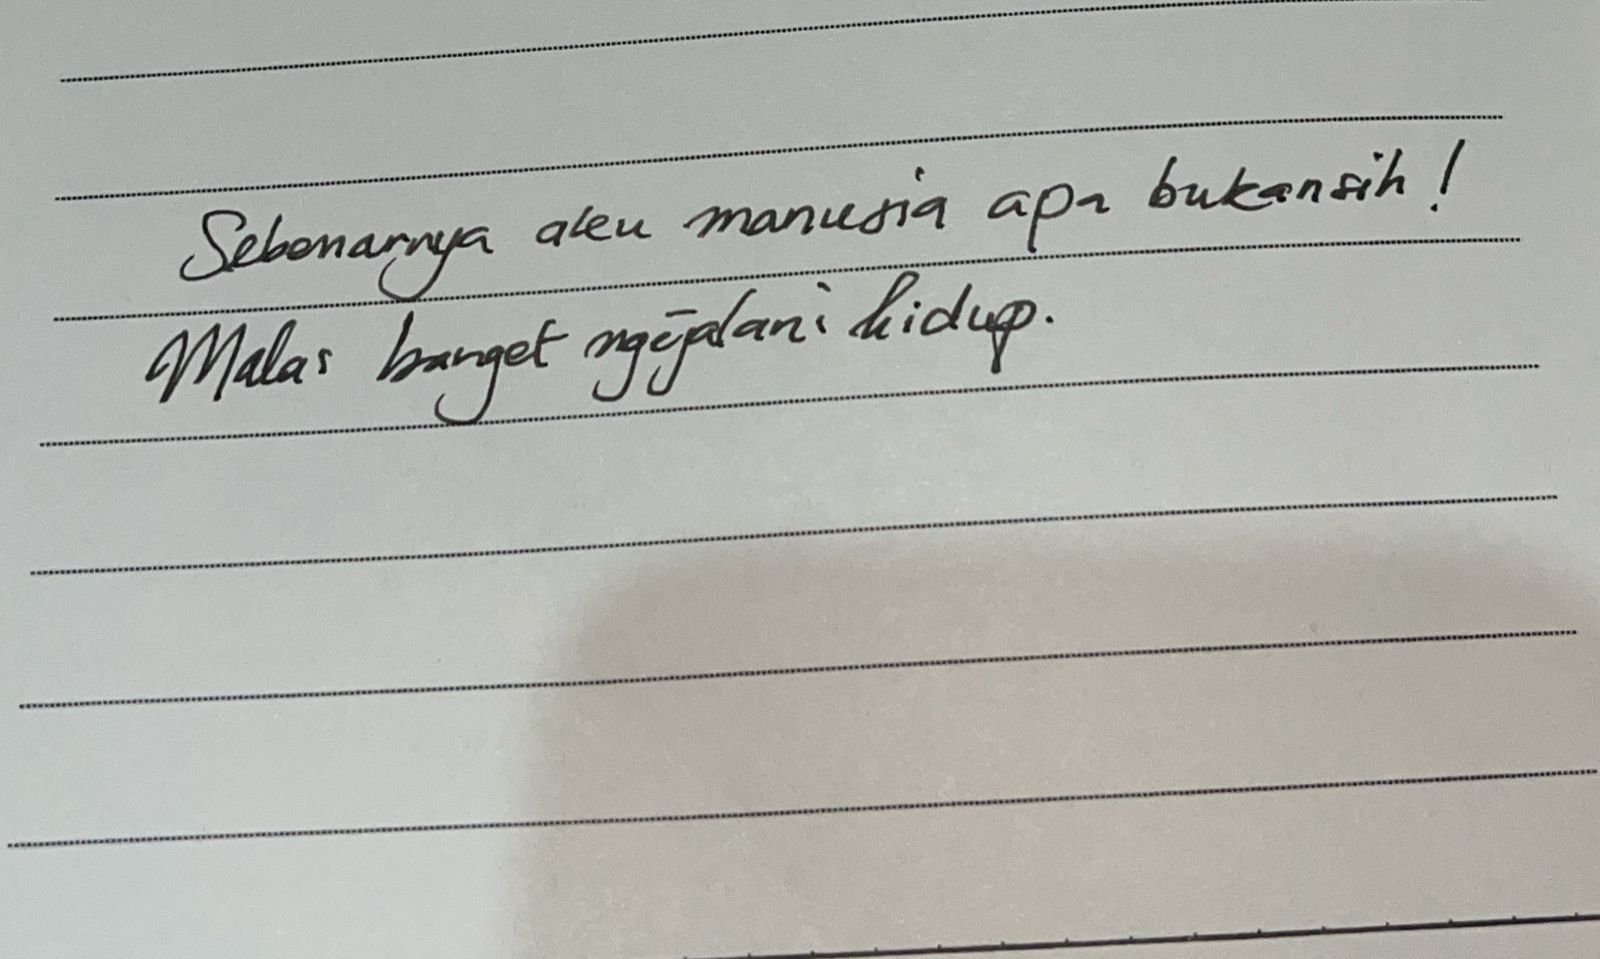 Sebenarnya aku manusia apa bukansih!
Malas banget ngejalani hidup.